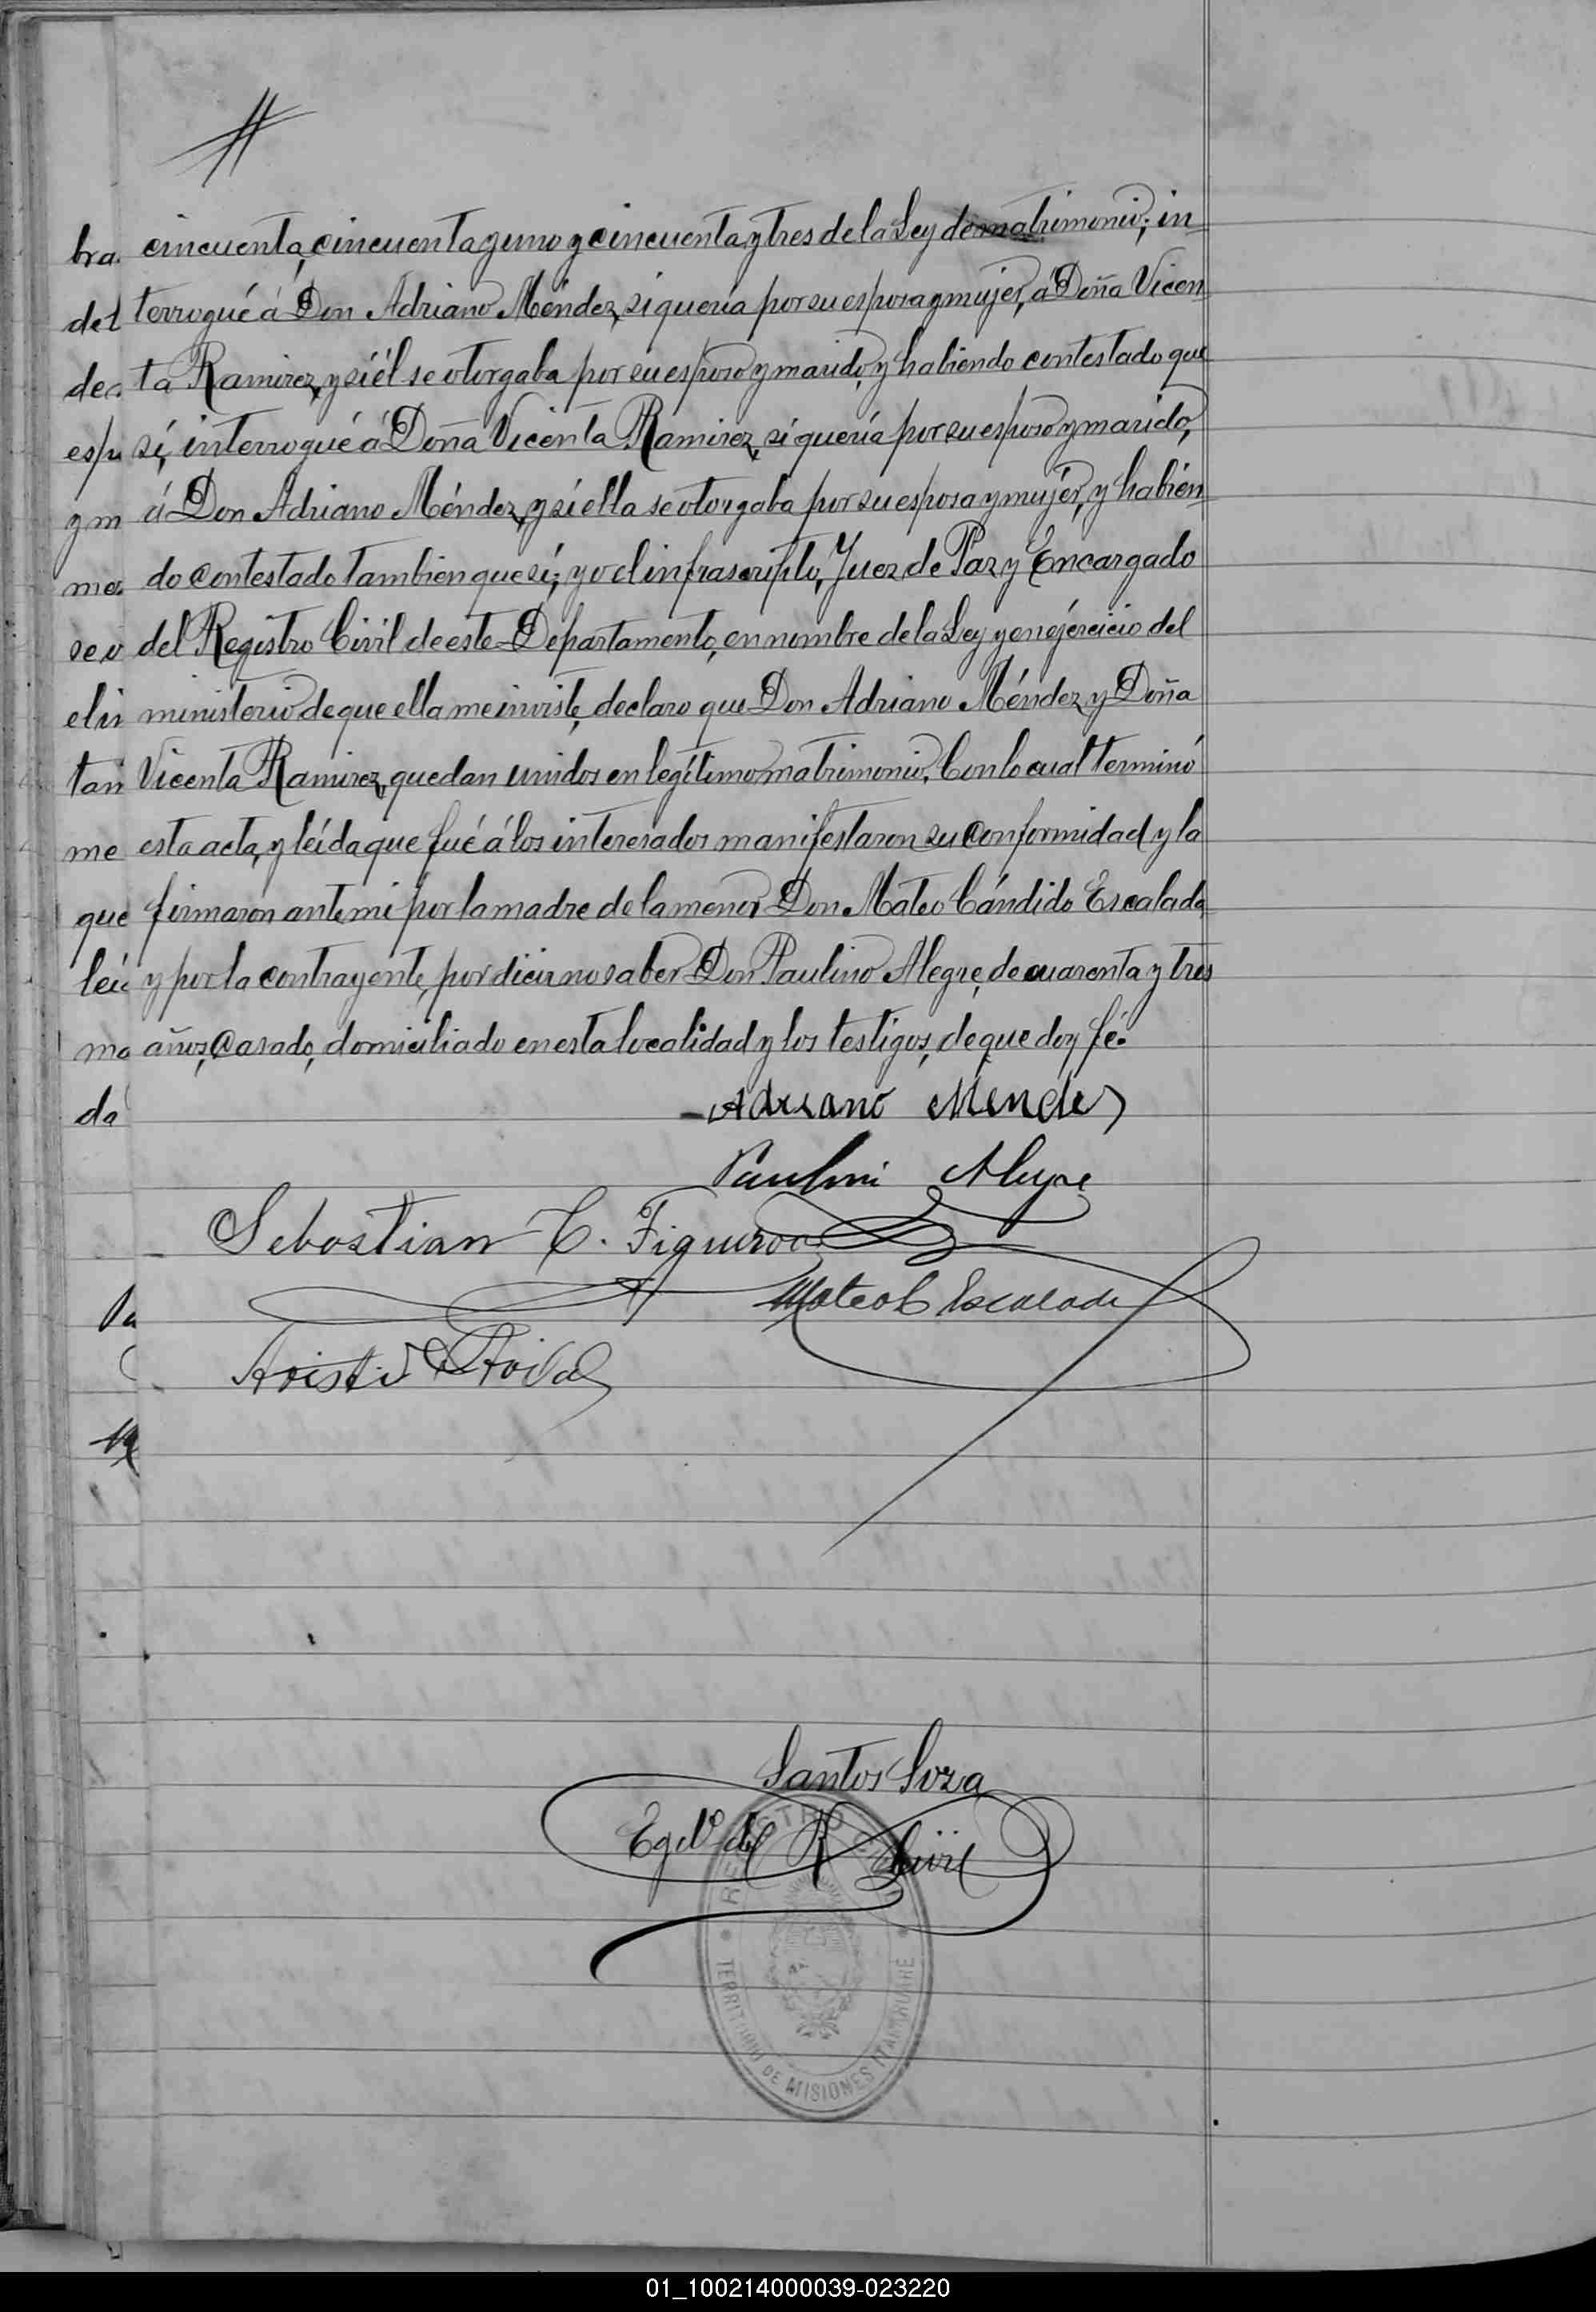 cincuenta, cincuenta y uno y cincuenta y tres de la Ley de matrimonio; in
terrogué á Don Adriano Méndez, si quería por su esposa y mujer, á Doña Vicen
ta Ramirez, y si él se otorgaba por su esposo y marido, y habiendo contestado que
sí, interrogué á Doña Vicenta Ramirez, si quería por su esposo y marido,
á Don Adriano Méndez, y si ella se otorgaba por su esposa y mujer, y habien
do contestado tambien que sí; yo el infrascripto, Juez de Paz y Encargado
del Registro Civil de este Departamento, en nombre de la Ley y en ejercicio del
ministerio de que ella me inviste, declaro que Don Adriano Méndez y Doña
Vicenta Ramirez, quedan unidos en legítimo matrimonio. Con lo cual terminó
esta acta, y leída que fué á los interesados manifestaron su conformidad y la
firmaron ante mi por la madre de la menor Don Mateo Cándido Escalada
y por la contrayente, por dicir no saber Don Paulino Alegre, de cuarenta y tres
años, casado, domiciliado en esta localidad y los testigos, de que doy fé.
bra
del
dec
espu
y m
me
se o
el in
tan
me
que
leíc
ma
da
Adriano Mendez
Paulino Alegre
Sebastian C. Figueroa
Mateo C Escalada
Santos Soza
Egdo del R Civil
REGISTRO
TERRITORIO DE MISIONES
01_100214000039-023220